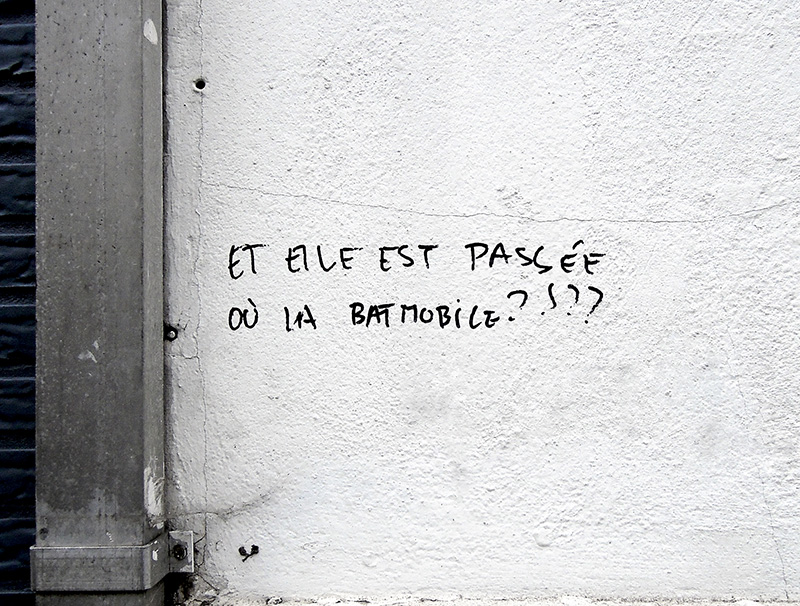 ET ELLE EST PASSÉE
OÙ LA BATMOBILE?!??